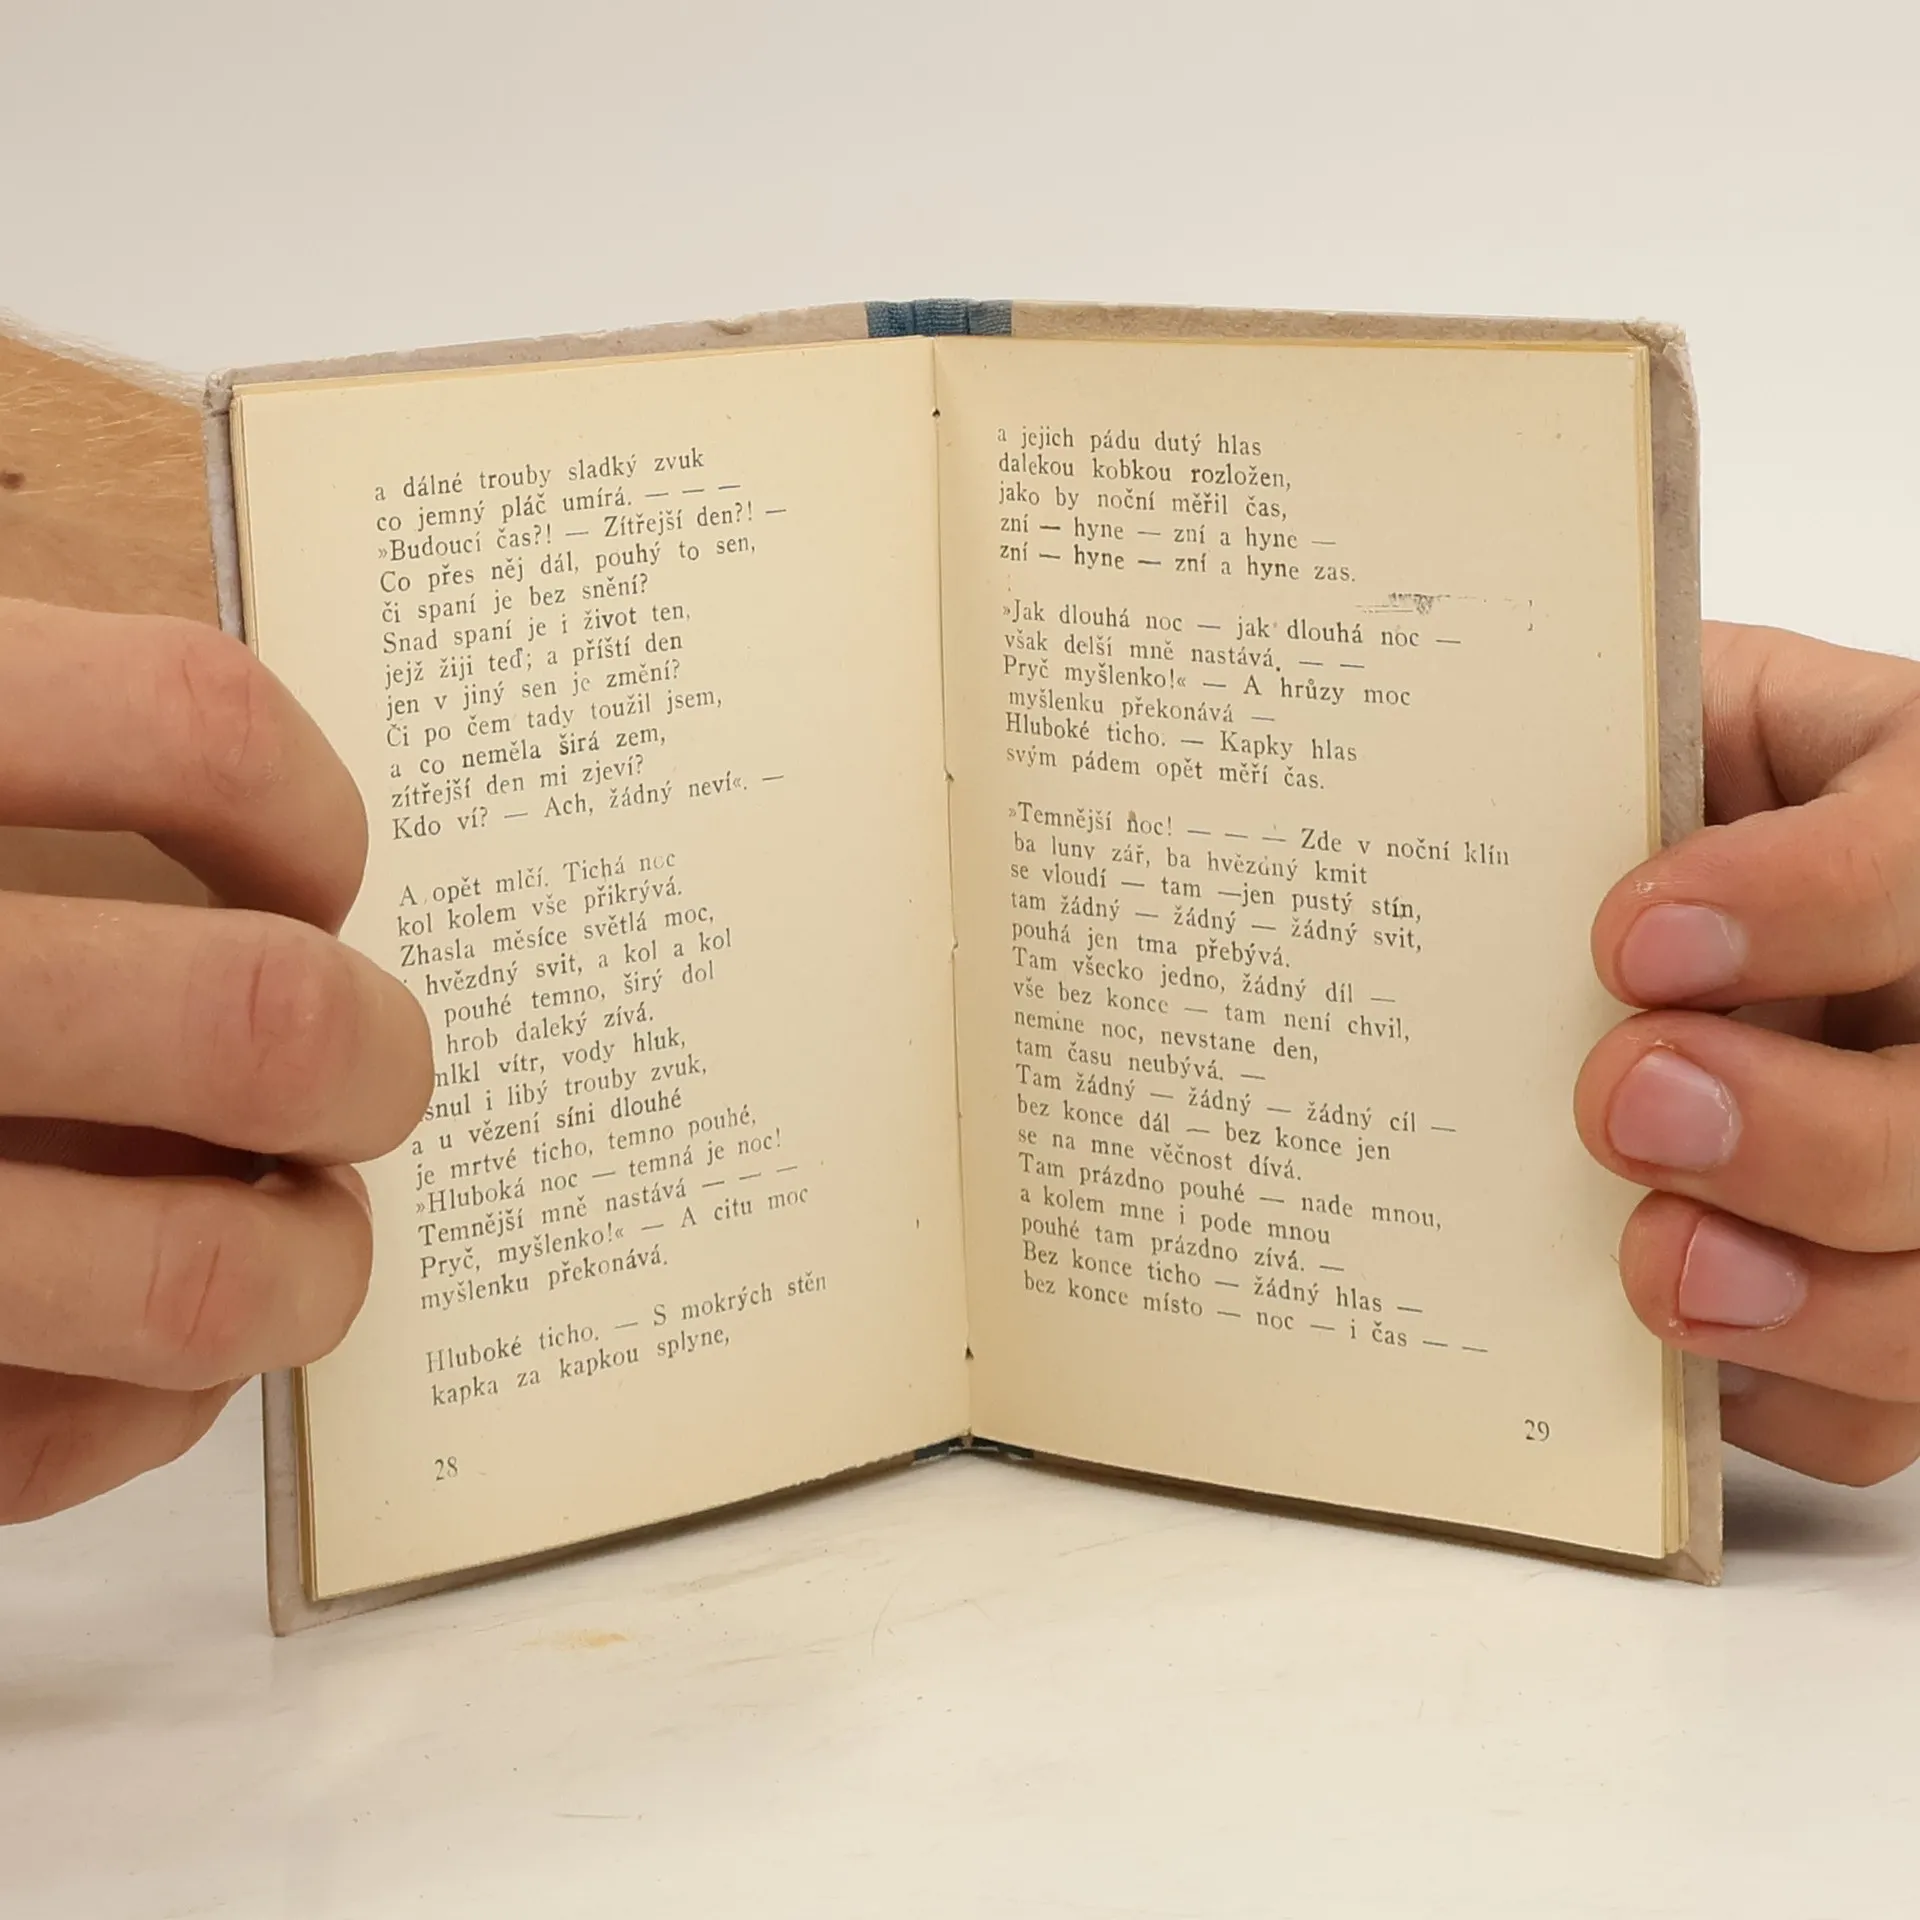 a dálné trouby sladký zvuk
co jemný pláč umírá. — — —
»Budoucí čas?! — Zítřejší den?! —
Co přes něj dál, pouhý to sen,
či spaní je bez snění?
Snad spaní je i život ten,
jejž žiji teď; a příští den
jen v jiný sen je změní?
Či po čem tady toužil jsem,
a co neměla širá zem,
zítřejší den mi zjeví?
Kdo ví? — Ach, žádný neví«. —
A opět mlčí. Tichá noc
kol kolem vše přikrývá.
Zhasla měsíce světlá moc,
hvězdný svit, a kol a kol
pouhé temno, širý dol
hrob daleký zívá.
vítr, vody hluk,
i libý trouby zvuk,
a u vězení síni dlouhé
je mrtvé ticho, temno pouhé,
»Hluboká noc — temná je noc!
Temnější mně nastává — — —
Pryč, myšlenko!« — A citu moc
myšlenku překonává.
Hluboké ticho. — S mokrých stěn
kapka za kapkou splyne,
28
a jejich pádu dutý hlas
dalekou kobkou rozložen,
jako by noční měřil čas,
zní — hyne — zní a hyne —
zní — hyne — zní a hyne zas.
»Jak dlouhá noc — jak dlouhá noc —
však delší mně nastává. — —
Pryč myšlenko!« — A hrůzy moc
myšlenku překonává —
Hluboké ticho. — Kapky hlas
svým pádem opět měří čas.
»Temnější noc! — — — Zde v noční klín
ba luny zář, ba hvězdný kmit
se vloudí — tam —jen pustý stín,
tam žádný — žádný — žádný svit,
pouhá jen tma přebývá.
Tam všecko jedno, žádný díl —
vše bez konce — tam není chvil,
nemine noc, nevstane den,
tam času neubývá. —
Tam žádný — žádný — žádný cíl —
bez konce dál — bez konce jen
se na mne věčnost dívá.
Tam prázdno pouhé — nade mnou,
a kolem mne i pode mnou
pouhé tam prázdno zívá. —
Bez konce ticho — žádný hlas —
bez konce místo — noc — i čas — —
29